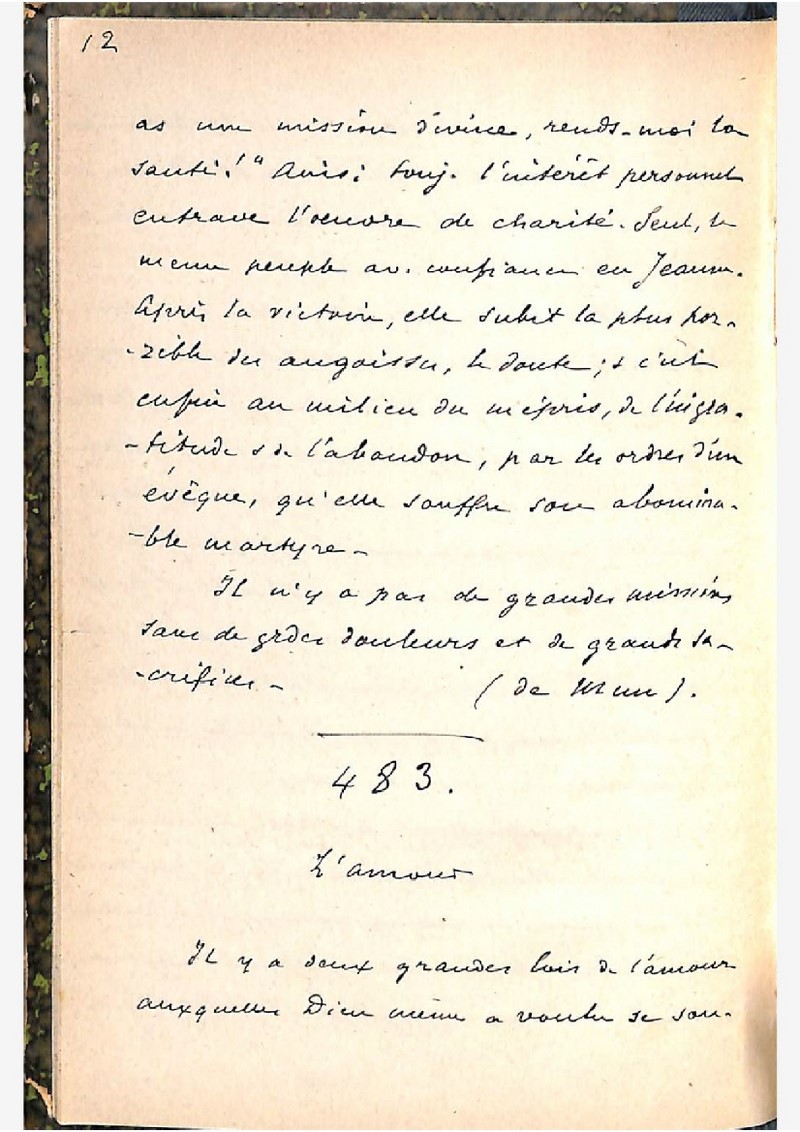 12
as une mission divine, rends-moi la
santé!" Ainsi touj. l'intérêt personnel
entrave l'oeuvre de charité. Seul, le
menu peuple av. confiance en Jeanne.
Après la victoire, elle subit la plus hor-
-rible des angoisses, le doute; & c'est
enfin au milieu du mépris, de l'ingra-
-titude & de l'abandon, par les ordres d'un
évêque, qu'elle souffre son abomina-
-ble martyre -
Il n'y a pas de grandes missions
sans de grdes douleurs et de grands sa-
-crifices - (de Mun).
483.
L'amour
Il y a deux grandes lois de l'amour
auxquelles Dieu même a voulu se sou-